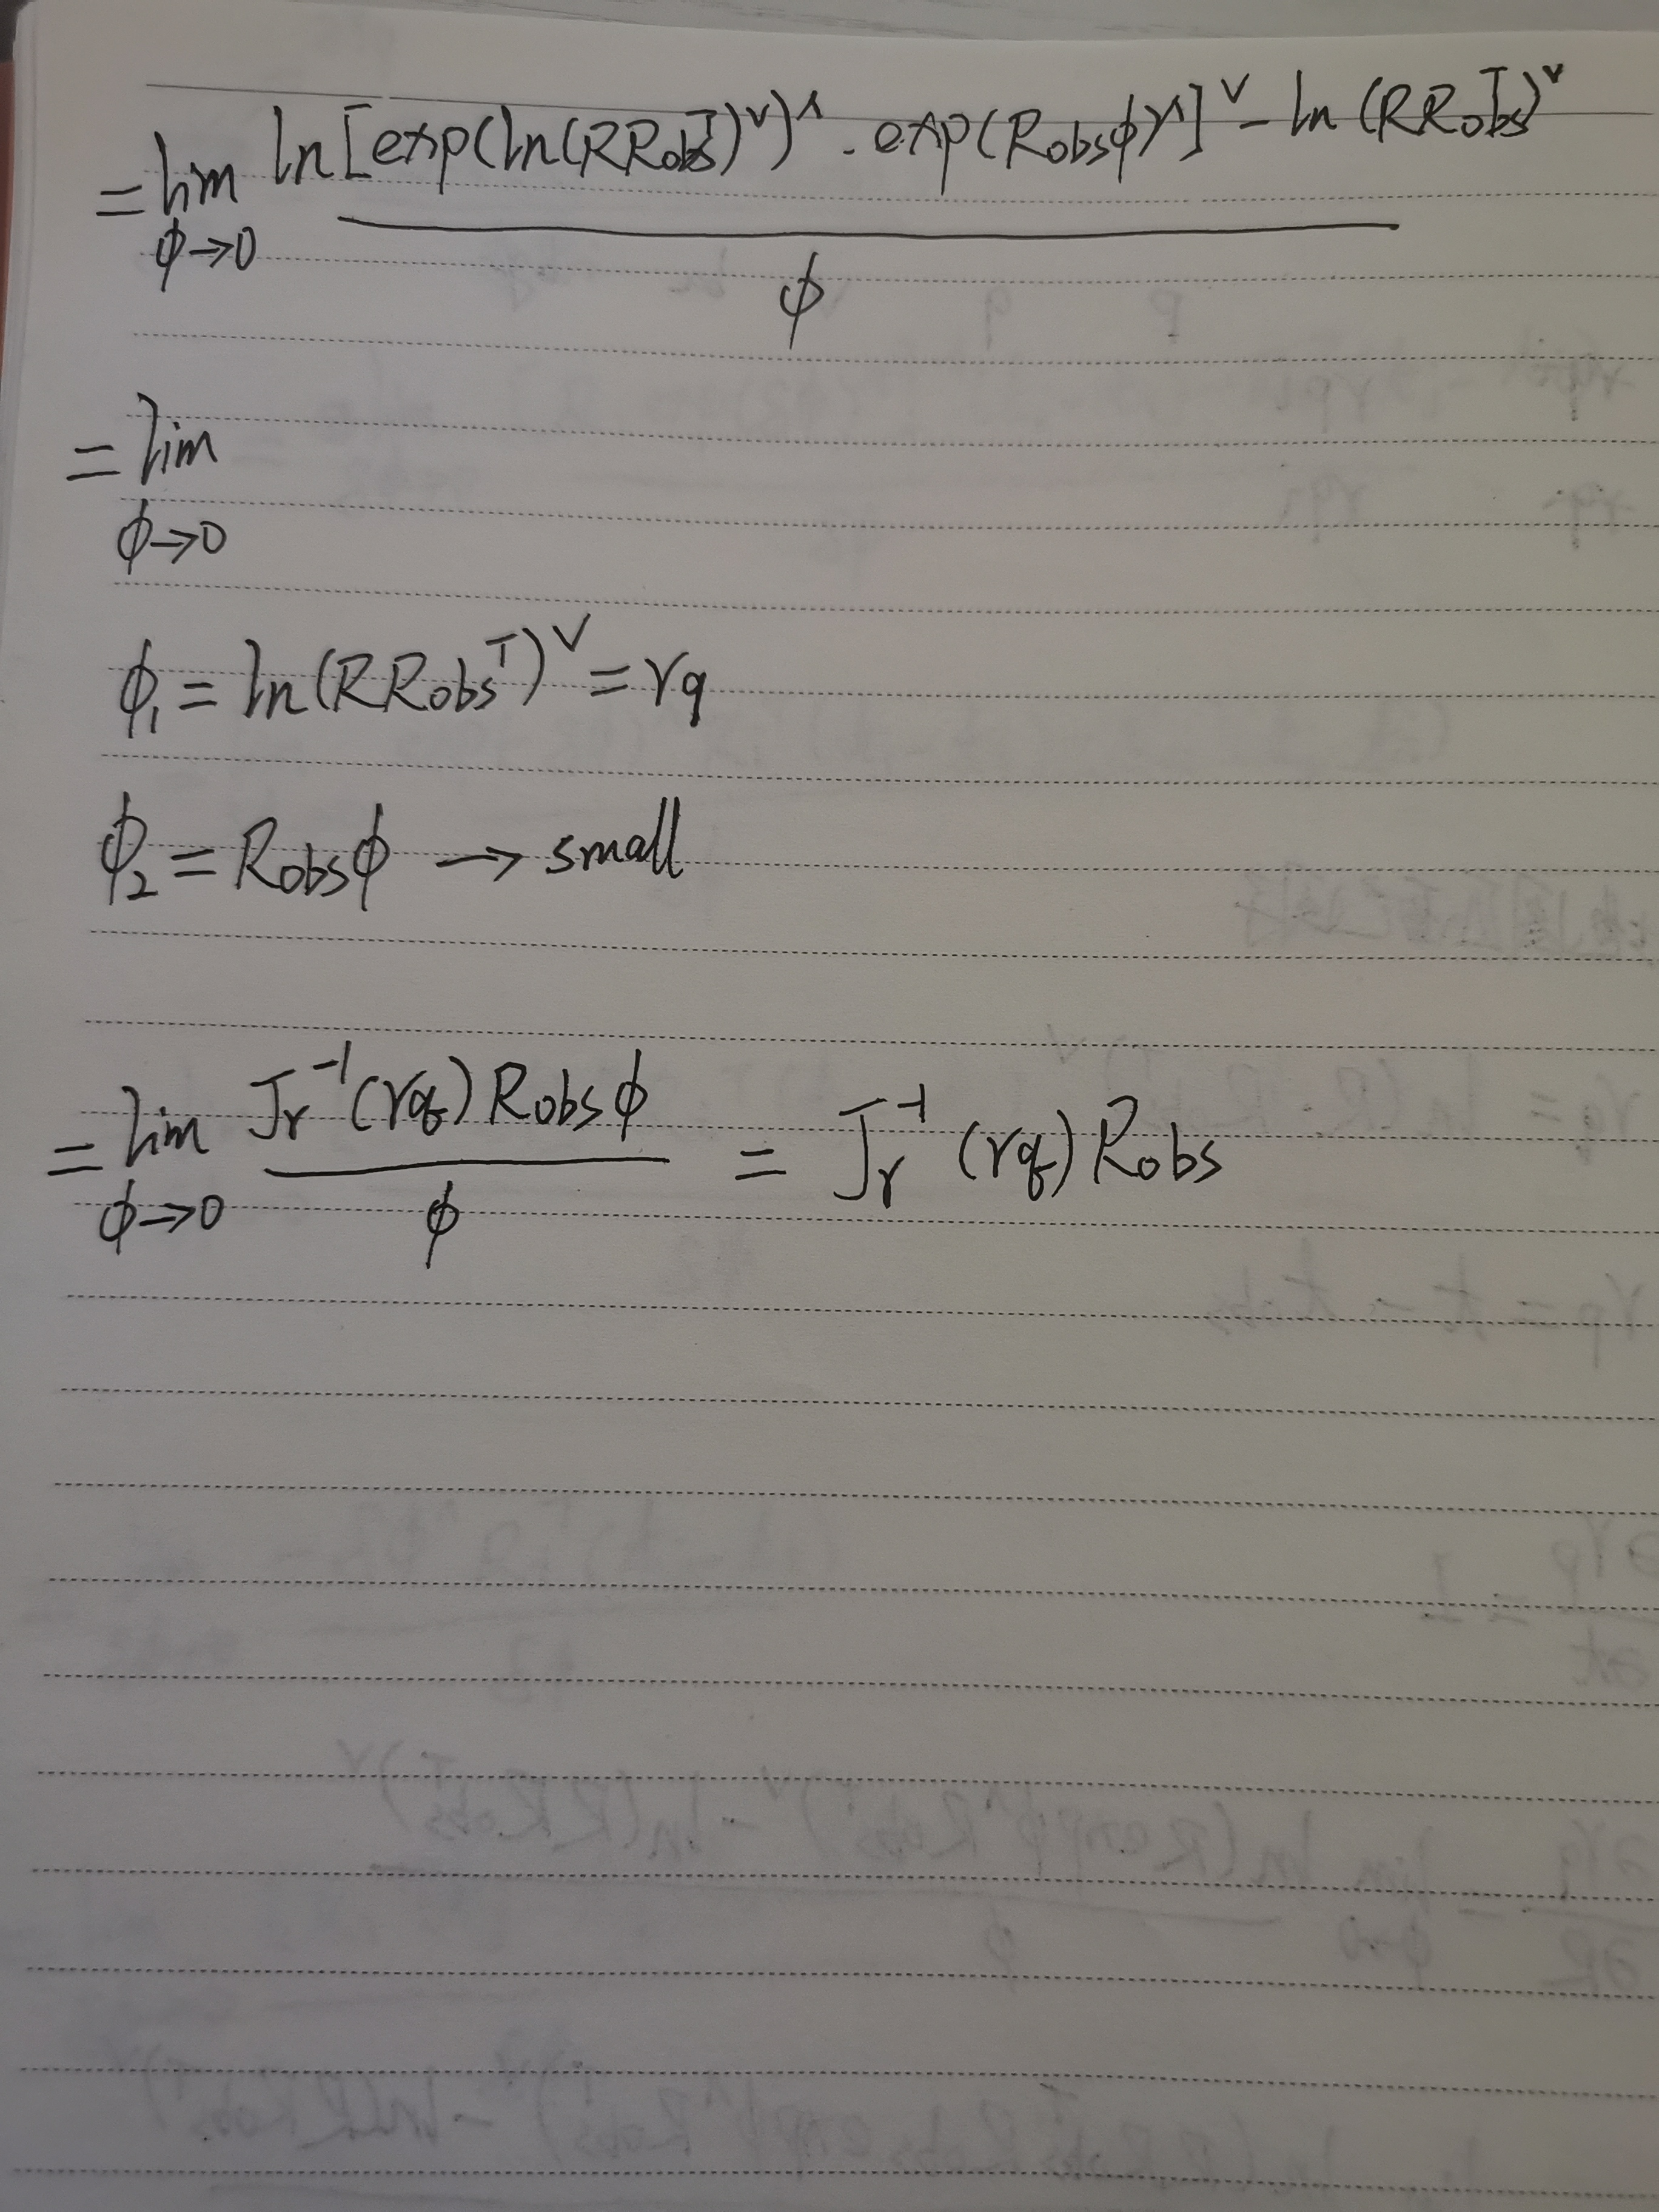 = lim ln[exp(ln(RRobsᵀ)ᵛ)^ · exp(Robsϕ)^]ᵛ - ln(RRobsᵀ)ᵛ
ϕ→0
ϕ
= lim
ϕ→0
ϕ₁ = ln(RRobsᵀ)ᵛ = rq
ϕ₂ = Robsϕ → small
= lim Jr⁻¹(rq)Robsϕ = Jr⁻¹(rq)Robs
ϕ→0 ϕ